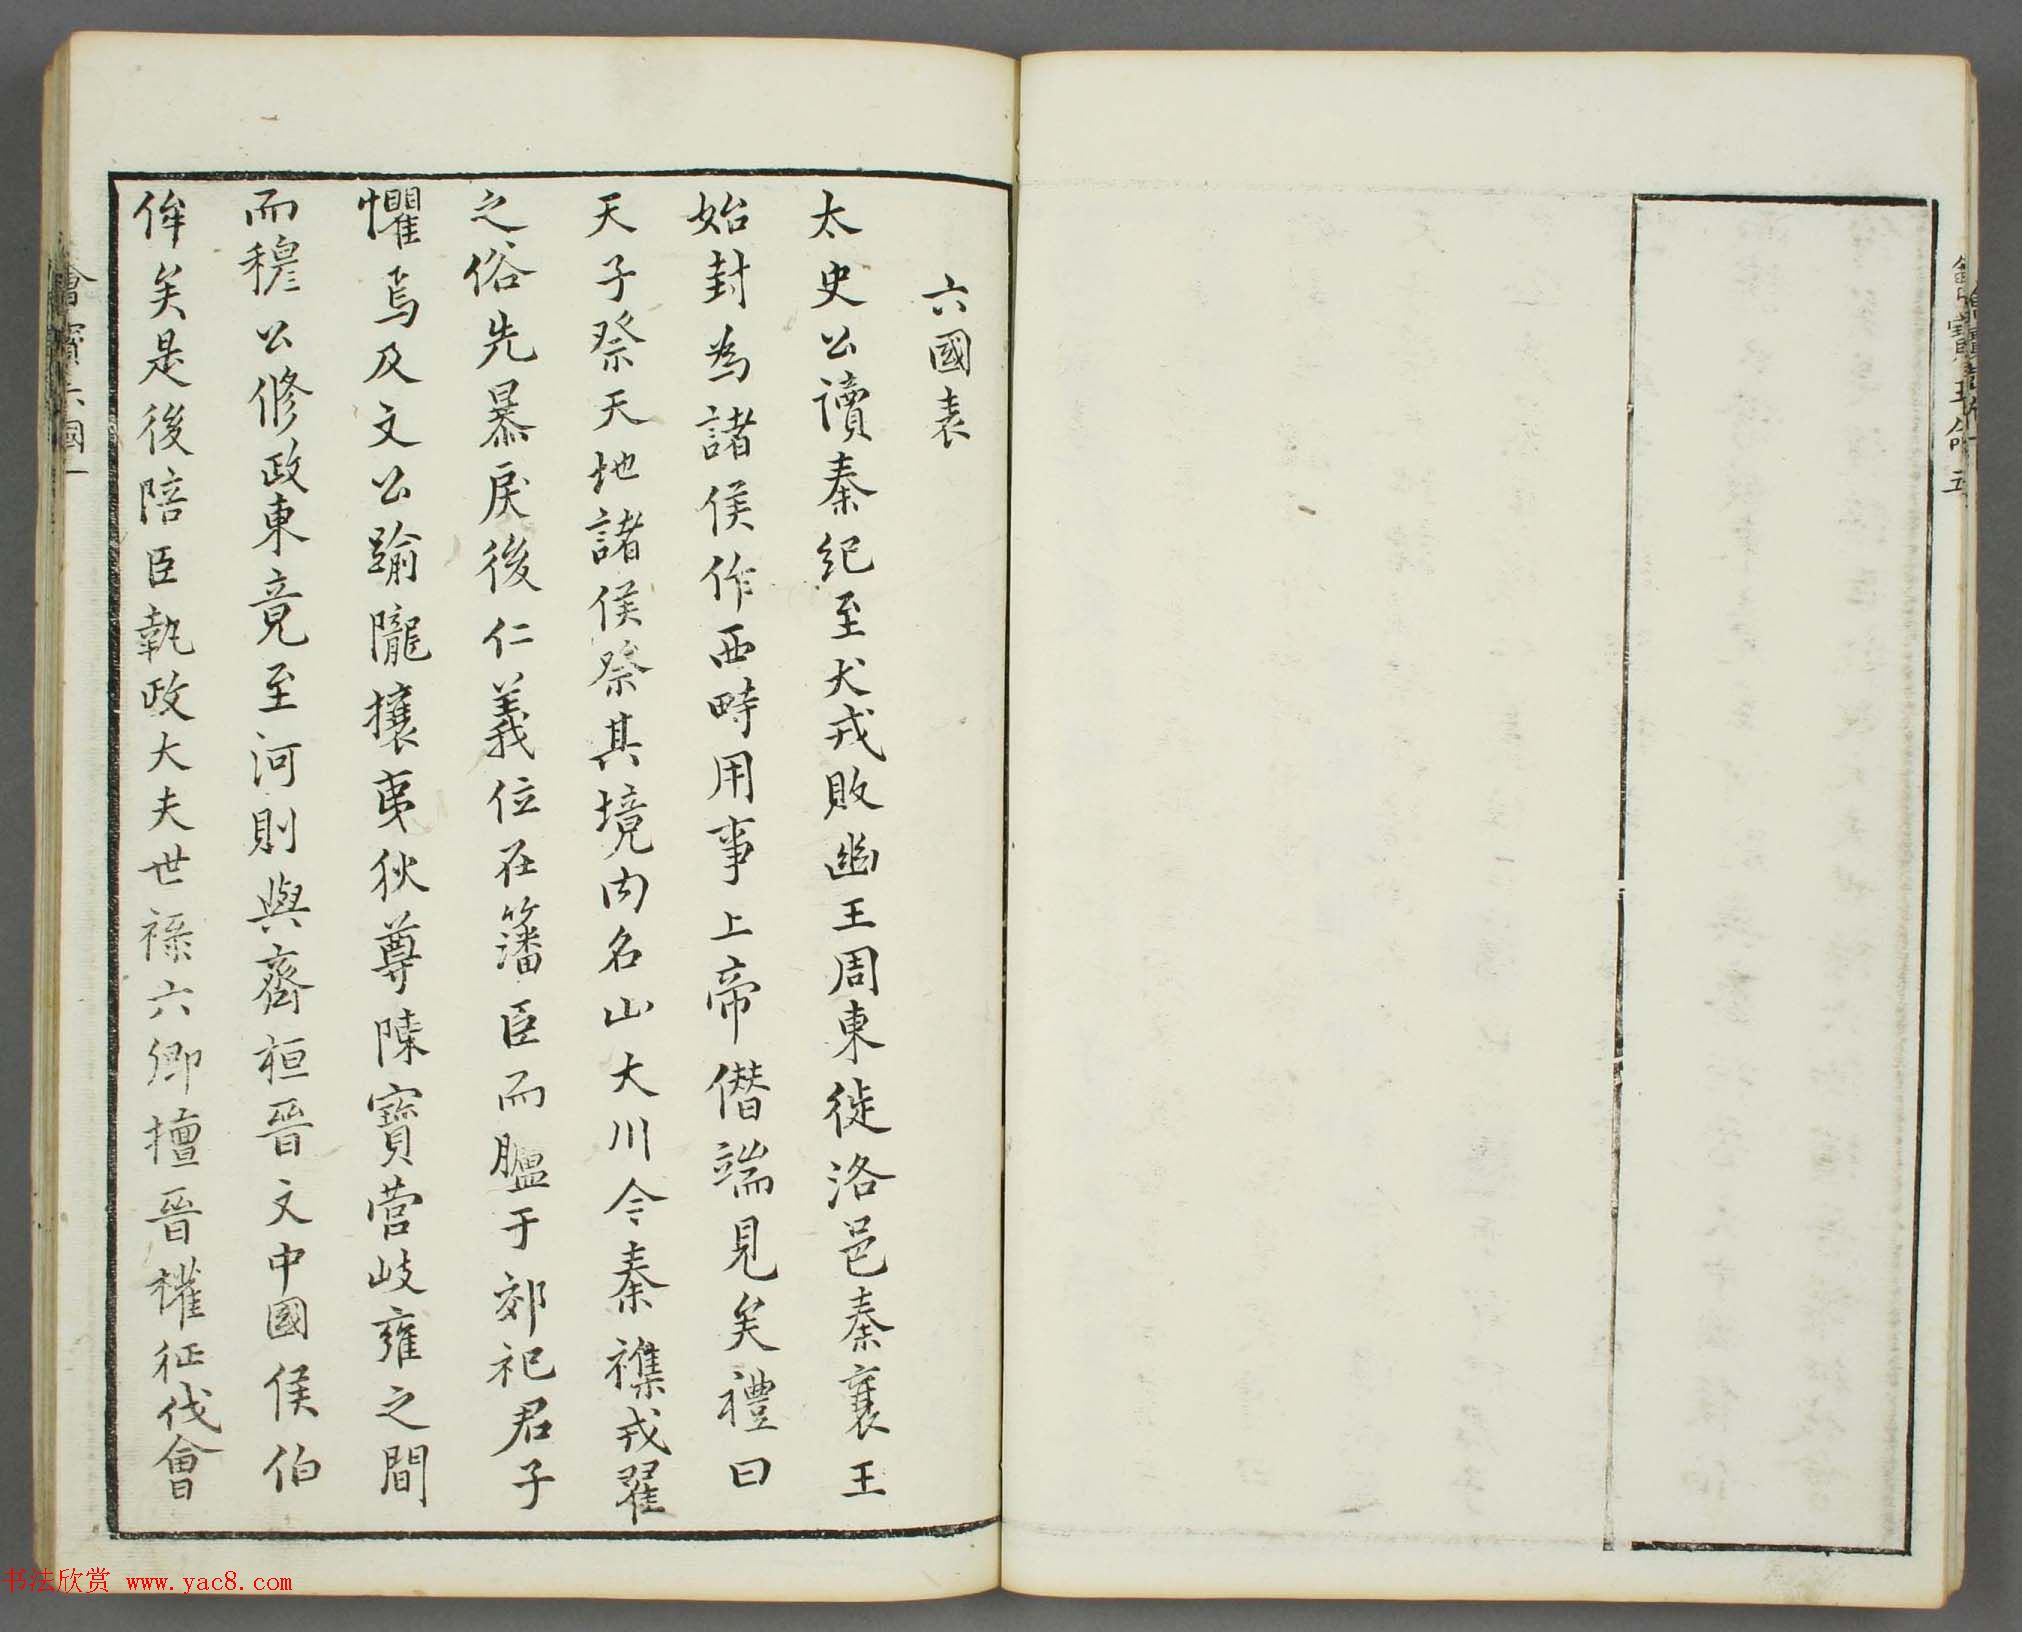 六國表
太史公讀秦紀至犬戎敗幽王周東徙洛邑秦襄王
始封為諸侯作西畤用事上帝僭端見矣禮曰
天子祭天地諸侯祭其境内名山大川今秦襍戎翟
之俗先暴戾後仁義位在籓臣而臚于郊祀君子
懼焉及文公踰隴攘夷狄尊陳寶營岐雍之間
而穆公修政東竟至河則與齊桓晉文中國侯伯
侔矣是後陪臣執政大夫世祿六卿擅晉權征伐會
會寶六國一
书法欣赏 www.yac8.com